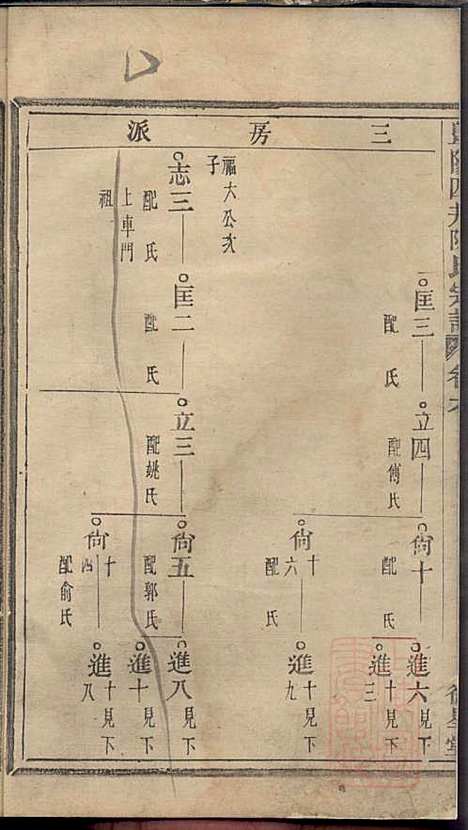 三房派
匡三
配氏
立四
配傅氏
尙十
配氏
進六見下
進十三見下
尙十六
配氏
進十九見下
福大公次子
志三
配氏
上車門祖
匡二
配氏
立三
配姚氏
尙五
配郭氏
進八見下
進十見下
尙十四
配俞氏
進十八見下